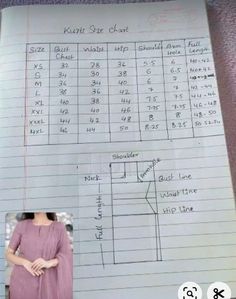 Kurti Size Chart
Size Bust Chest Waist Hip Shoulder Arm Hole Full Length
XS 32 28 36 5.5 6 40-42
S 34 30 38 6 6.5 40-42
M 36 34 40 7
L 38 36 42 7 7 42-44
XL 40 38 44 7.5 7.5 44-46
XXL 42 40 46 7.75 7.75 46-48
XXXL 44 42 48 8 8 48-50
4XL 46 44 50 8.25 8.25 50
Shoulder
Armhole
Neck
Bust Line
Waist Line
Full length
Hip Line